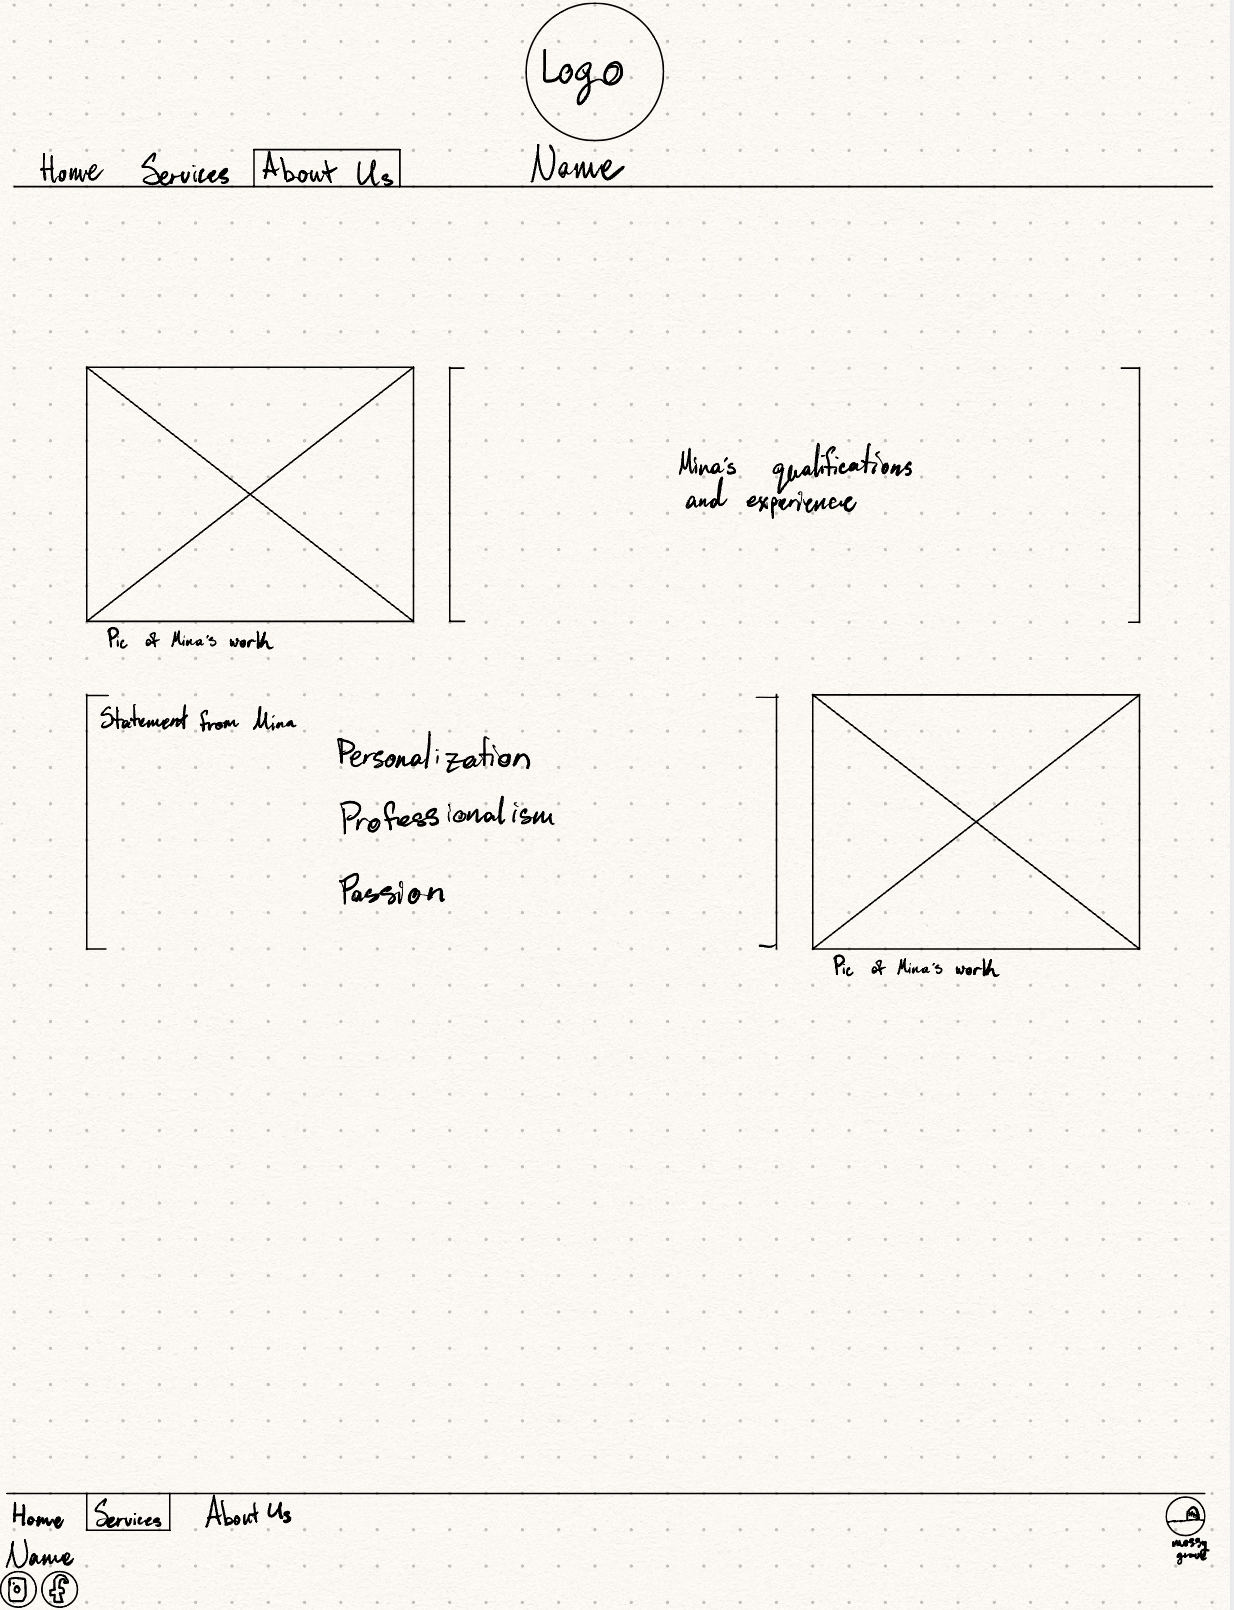 Logo
Name
Home Services About Us
Mina's qualifications
and experience
Pic of Mina's work
Statement from Mina
Personalization
Professionalism
Passion
Pic of Mina's work
Home Services About Us
Name
mossy